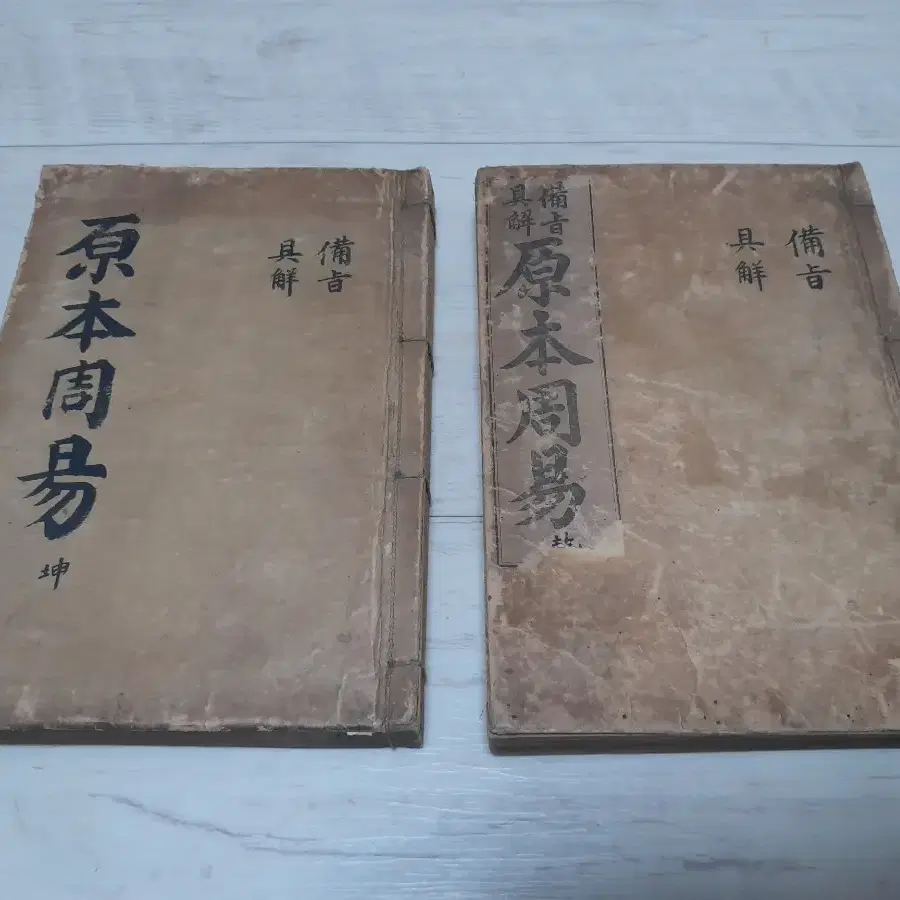 備旨
具解
原本周易
坤
備旨
具解
備旨
具解
原本周易